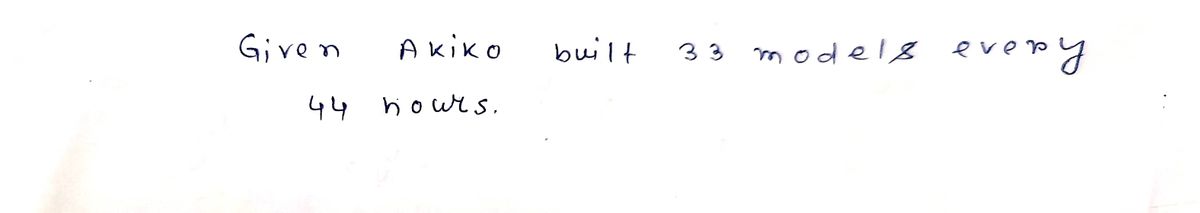 Given Akiko built 33 models every
44 hours.